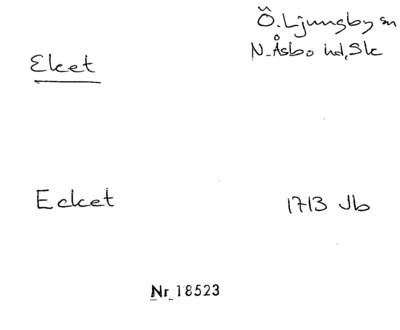 Ö. Ljungby sn
N. Åsbo hd, Sk
Eket
Ecket
1713 Jb
Nr 18523